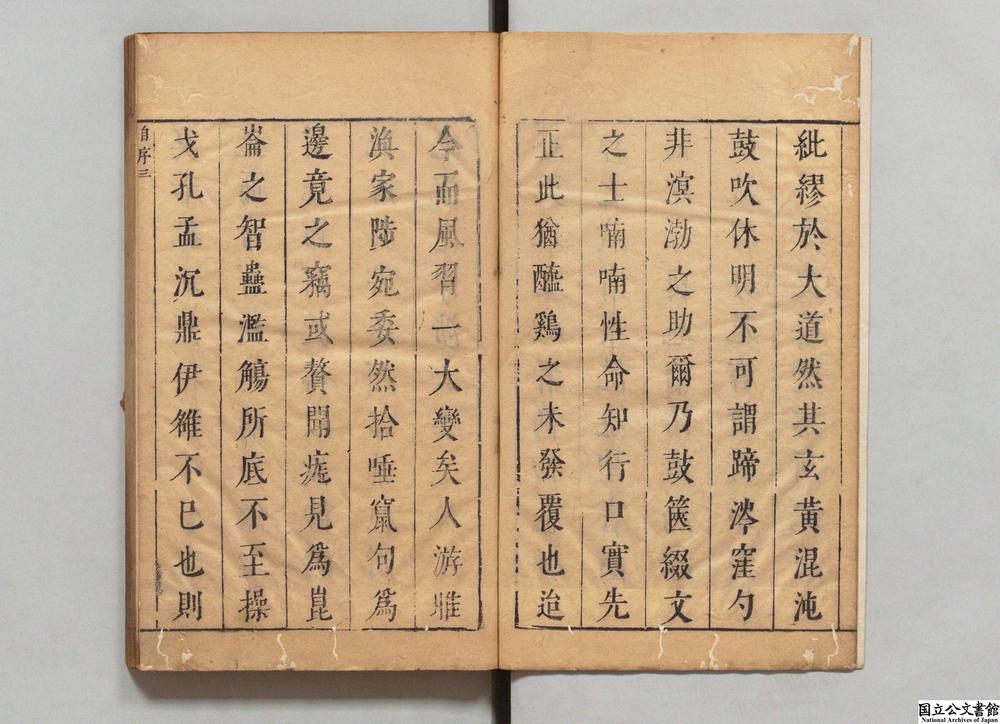 紕繆於大道然其玄黃混沌
鼓吹休明不可謂蹄涔窪勺
非溟渤之助爾乃鼓篋綴文
之士喃喃性命知行口實先
正此猶醯鷄之未發覆也迨
今而風習一大變矣人游雅
渙家陟宛委然拾唾竄句爲
邊竟之竊或贅聞疣見爲崑
崙之智蠱濫觴所底不至操
戈孔孟沉鼎伊雒不已也則
自序三
国立公文書館
National Archives of Japan